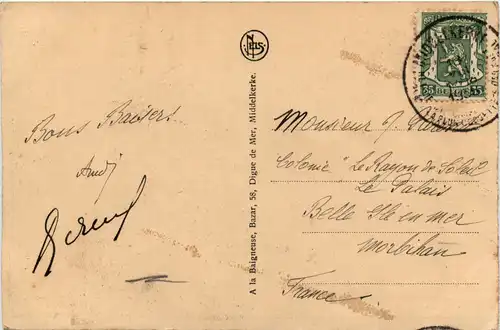 Bons Baisers
A la Baigneuse, Bazar, 58, Digue de Mer, Middelkerke.
35 BE 35
MIDDELKERKE
Monsieur J.
Colonie "Le Rayon de Soleil"
Le Palais
Belle Ile en mer
Morbihan
France